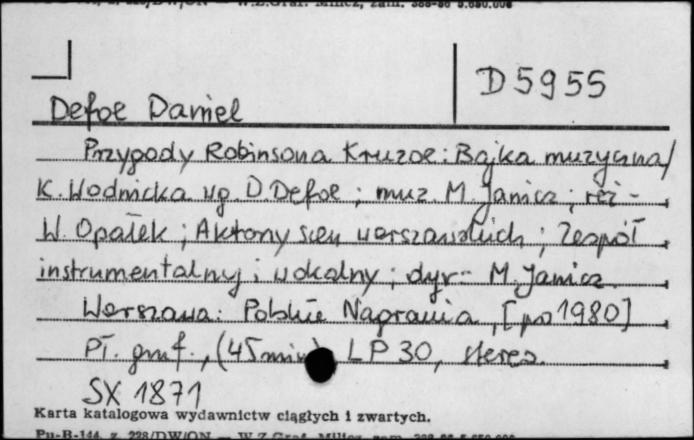 D 5955
Defoe Daniel
Przygody Robinsona Kruzoe : Bajka muzyczna /
K. Wodnicka wg. D. Defoe ; muz. M. Janicz ; reż -
W. Opałek ; Aktorzy scen warszawskich ; Zespół
instrumentalny i wokalny ; dyr - M. Janicz.
Warszawa : Polskie Nagrania, [po 1980]
Pł. gmf., (45 min) LP 30, stereo.
SX 1871
Karta katalogowa wydawnictw ciągłych i zwartych.
Pu-B-144, z. 228/DW/ON — W.Z.Graf. Milicz, zam.